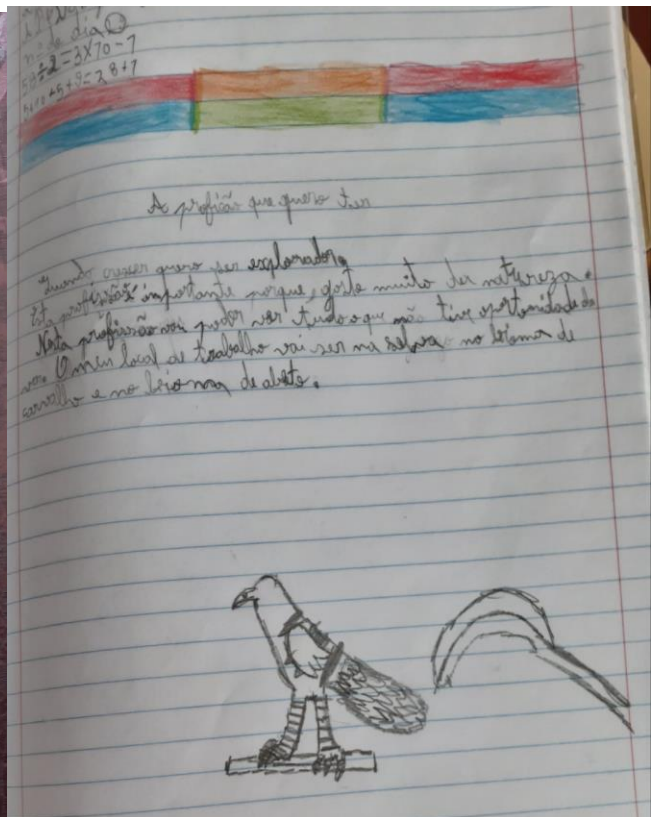 nº do dia
58÷2=3×10-7
A profição que quero ter
Quando crescer quero ser explorador.
Esta profissão é importante porque, gosto muito da natureza.
Nesta profissão vou poder ver tudo o que não tive oportunidade de
ver. O meu local de trabalho vai ser na selva, no bioma de
carvalho e no bioma de abeto.